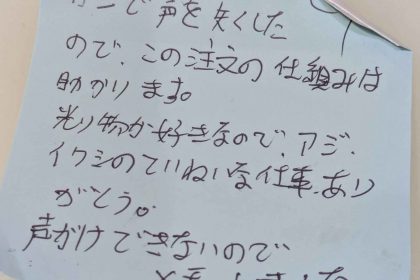 ガンで声を失くした
ので、この注文の仕組みは
助かります。
光り物が好きなので、アジ、
イワシのていねいな仕事、あり
がとう。
声がけできないので